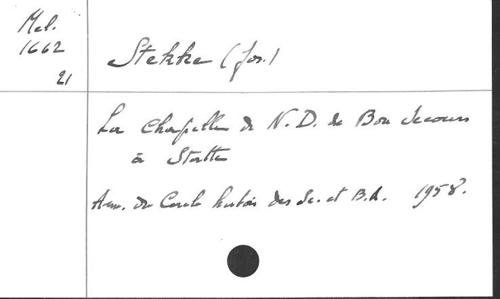 Mel.
1662
21
Stekke (Jos.)
La Chapelle de N.D. de Bon Secours
à Statte
Ann. du Cercle hutois des Sc. et B.A. 1958.